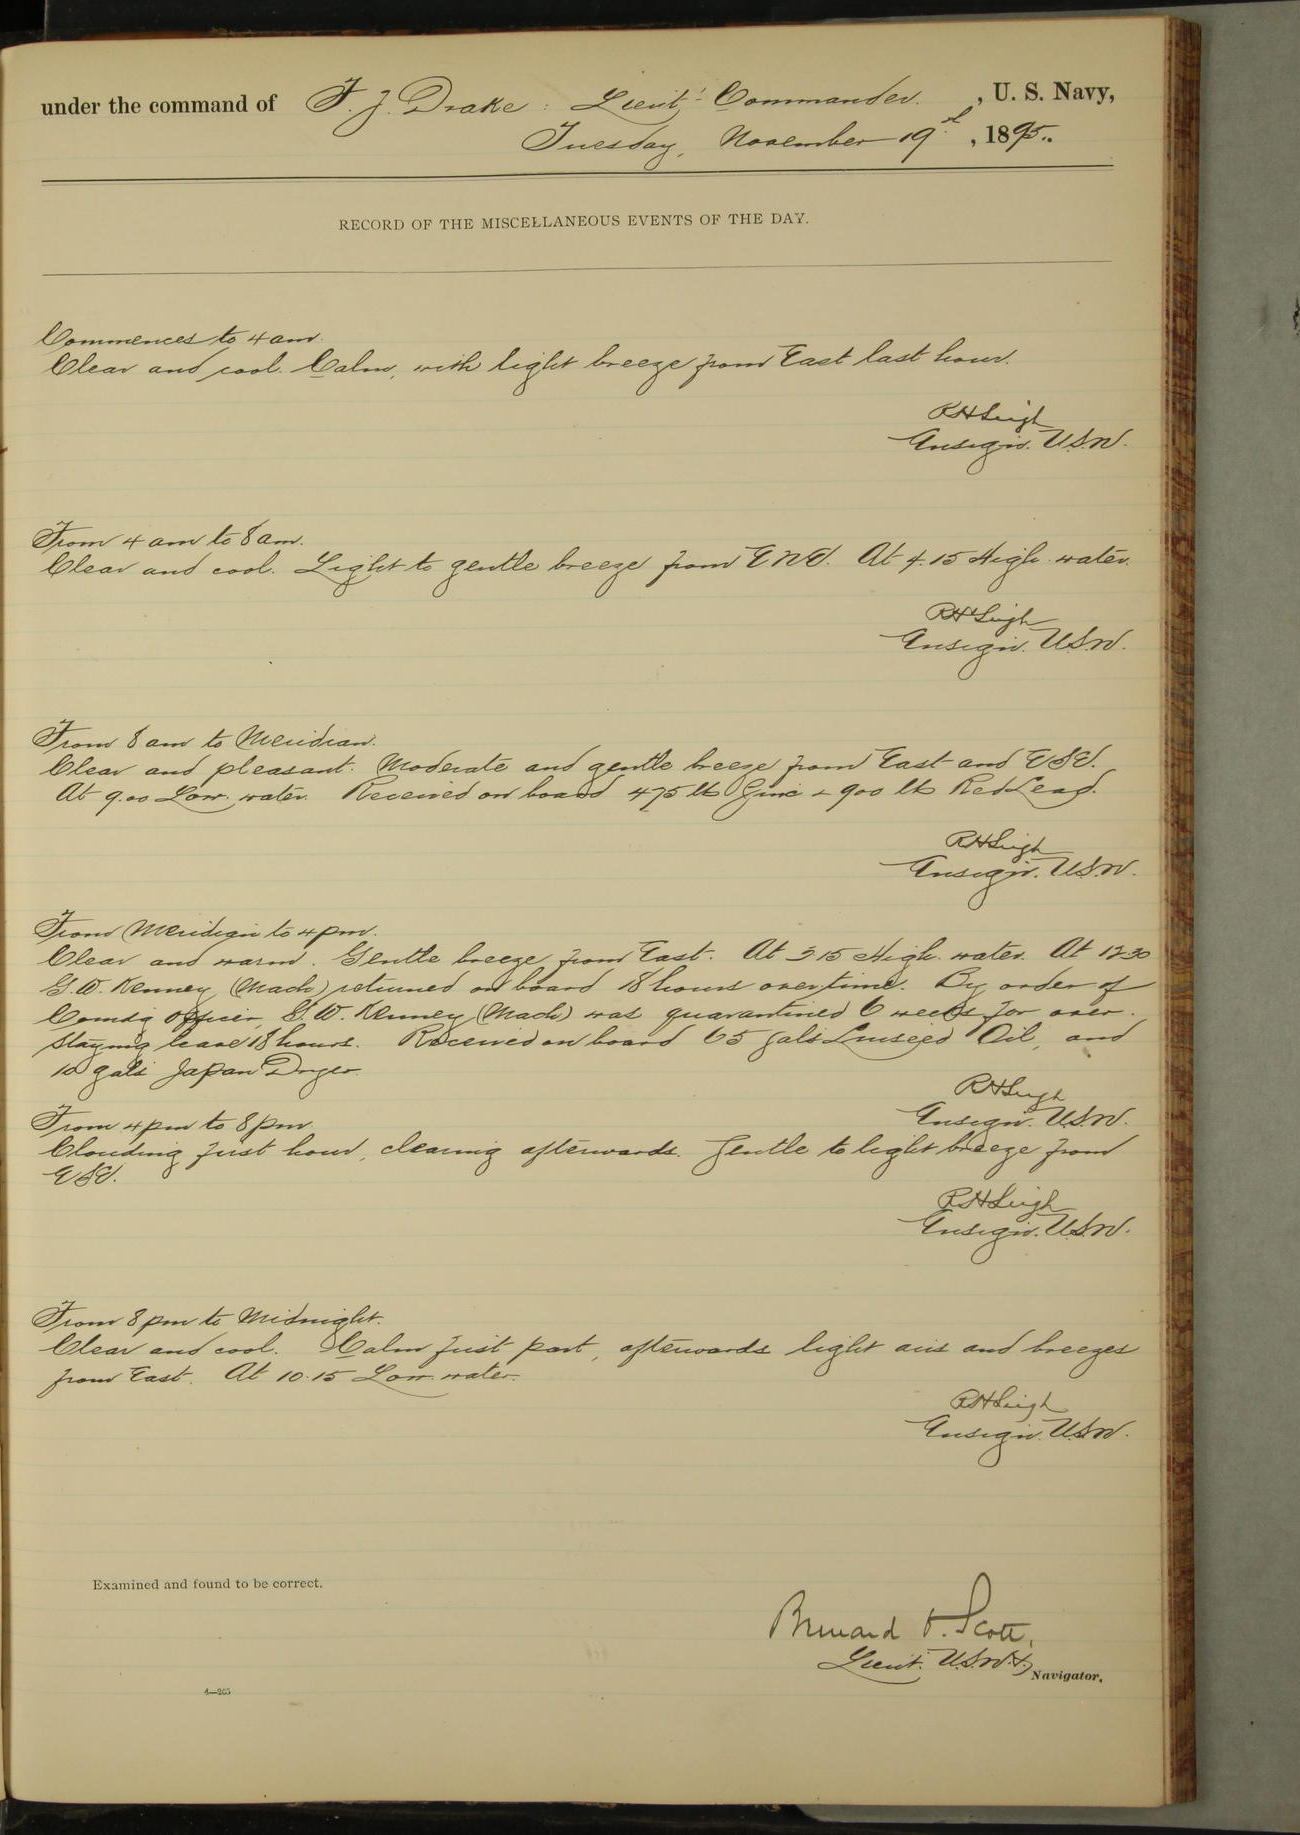 under the command of F. J. Drake : Lieut.- Commander. , U. S. Navy,
Tuesday, November 19th , 1895.
RECORD OF THE MISCELLANEOUS EVENTS OF THE DAY.
Commences to 4 am.
Clear and cool. Calm, with light breeze from East last hour.
R H Leigh
Ensign. U.S.N.
From 4 am to 8 am.
Clear and cool. Light to gentle breeze from ENE. At 4.15 High water.
R H Leigh
Ensign. U.S.N.
From 8 am to Meridian.
Clear and pleasant. Moderate and gentle breeze from East and ESE.
At 9.00 Low water. Received on board 475 lb Zinc & 900 lb Red Lead.
R H Leigh
Ensign. U.S.N.
From Meridian to 4 pm.
Clear and warm. Gentle breeze from East. At 3 15 High water. At 12 30
G. W. Kenney (Mach) returned on board 18 hours overtime. By order of
Comdg Officer, G. W. Kenney (Mach) was quarantined 6 weeks for over-
staying leave 18 hours. Received on board 65 gals Linseed Oil, and
10 gals Japan Dryer.
R H Leigh
Ensign. U.S.N.
From 4 pm to 8 pm
Clouding first hour, clearing afterwards. Gentle to light breeze from
ESE.
R H Leigh
Ensign. U.S.N.
From 8 pm to Midnight.
Clear and cool. Calm first part, afterwards light airs and breezes
from East. At 10.15 Low water.
R H Leigh
Ensign. U.S.N.
Examined and found to be correct.
Bernard O. Scott,
Lieut. U.S.N.
Navigator.
4—265